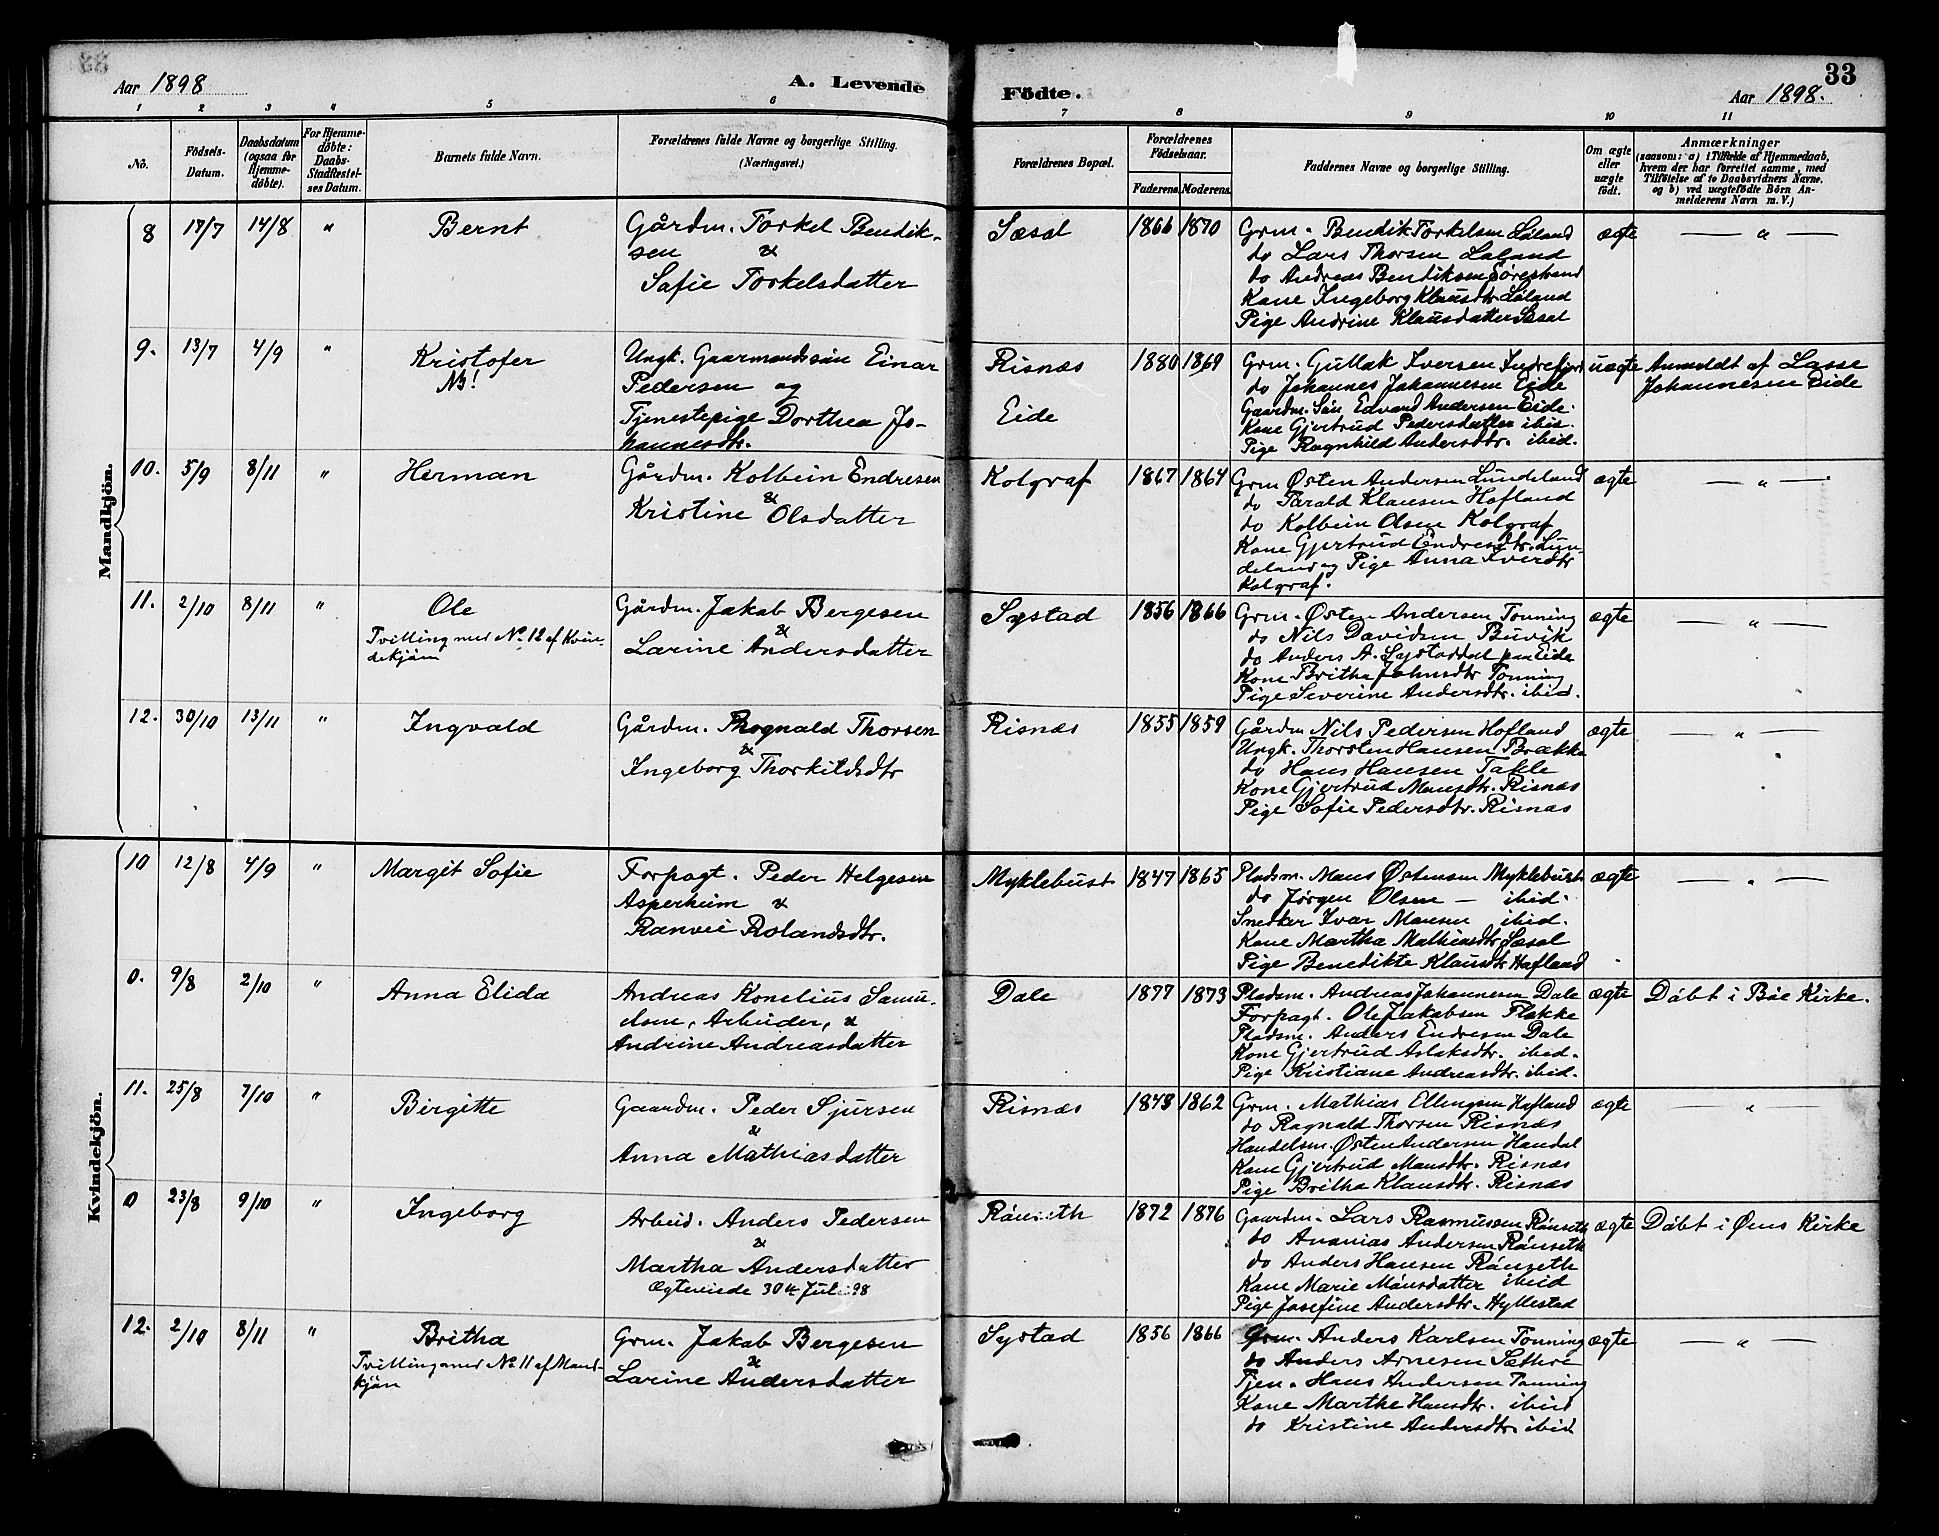 Aar 1898
A. Levende
Födte.
33
Aar 1898.
1 2 3 4 5 6 7 8 9 10 11
No.
Födsels-
Datum.
Daabsdatum
(ogsaa for
Hjemme-
döbte).
For Hjemme-
döbte:
Daabs-
Stadfæstel-
ses Datum.
Barnets fulde Navn.
Forældrenes fulde Navne og borgerlige Stilling.
(Næringsvei.)
Forældrenes Bopæl.
Forældrenes
Födselsaar.
Faderens. Moderens.
Faddernes Navne og borgerlige Stilling.
Om ægte
eller
uægte
födt.
Anmærkninger
(saasom: a) i Tilfælde af Hjemmedaab,
hvem der har forrettet samme, med
Tilföielse af to Daabsvidners Navne.
og b) ved uægtefödte Börn An-
melderens Navn m. V.)
Mandkjön.
8 17/7 14/8 " Bernt
Gårdm. Torkel Bendik-
sen &
Safie Torkelsdatter
Sæsol 1866 1870
Grm. Bendik Torkelsen Løland
do Lars Thorsen Løland
do Andreas Bendiksen Sørestrand
Kone Ingeborg Klausdtr. Løland
Pige Andrine Klausdatter Sæsol
ægte — " —
9. 13/7 4/9 " Kristofer
NB!
Ungk. Gaarmandssøn Einar
Pedersen og
Tjenestepige Dorthea Jo-
hannesdtr.
Risnæs
Eide
1880 1869
Grm. Gullak Iversen Indrefjord
do Johannes Johannesen Eide
Gaardm. Søn Edvard Andersen Eide.
Kone Gjertrud Pedersdatter ibid.
Pige Ragnhild Andersdtr. ibid.
uægte
Anmeldt af Lasse
Johannesen Eide
10. 5/9 8/11 " Herman
Gårdm. Kolbein Endresen
&
Kristine Olsdatter
Kolgraf 1867 1864
Grm Østen Andersen Lundeland
do Tarald Klausen Hofland
do Kolbein Olsen Kolgraf
Kone Gjertrud Endresdtr. Lun-
deland og Pige Anna Iversdtr
Kolgraf.
ægte — " —
11. 2/10 8/11 " Ole
Tvilling med No. 12 af Kvin-
dekjøn
Gårdm. Jakob Bergesen
&
Larine Andersdatter
Systad 1856 1866
Grm. Østen Andersen Tonning
do Nils Davidsen Buvik
do Anders A. Systaddal paa Eide
Kone Britha Johnsdtr Tonning
Pige Severine Andersdtr. ibid.
ægte — " —
12. 30/10 13/11 " Ingvald
Gårdm. Rognald Thorsen
&
Ingeborg Thorkildsdtr
Risnæs 1855 1859
Gårdm Nils Pedersen Hofland
Ungk. Thorsten Hansen Brække
do Hans Hansen Takle
Kone Gjertrud Mansdtr. Risnæs
Pige Sofie Pedersdtr. Risnæs
ægte — " —
Kvindekjön.
10 12/8 4/9 " Margit Sofie
Forpagt. Peder Helgesen
Asperheim &
Ranvei Rolandsdtr.
Myklebust 1847 1865
Pladsm. Mans Østensen Myklebust
do Jørgen Olsen — ibid.
Snedker Ivar Mansen ibid.
Kone Martha Mathiasdtr Sæsol
Pige Benedikte Klausdtr Hafland
ægte — " —
0. 9/8 2/10 " Anna Elida
Andreas Konelius Samu-
elsen, Arbeider, &
Andrine Andreasdatter
Dale 1877 1873
Pladsm. Andreas Johannesen Dale
Forpagt. Ole Jakobsen Flekke
Pladsm. Anders Endresen Dale
Kone Gjertrud Aslaksdtr. ibid.
Pige Kristiane Andreasdtr. ibid.
ægte Døbt i Bøe Kirke.
11. 25/8 7/10 " Birgitte
Gaardm. Peder Sjursen
&
Anna Mathiasdatter
Risnæs 1843 1862
Grm. Mathias Ellingsen Hafland
do Ragnald Thorsen Risnæs
Handelsm. Østen Andersen Handal
Kone Gjertrud Mansdtr. Risnæs
Pige Britha Klausdtr. Risnæs
ægte — " —
0 23/8 9/10 " Ingeborg
Arbeid. Anders Pedersen
&
Martha Andersdatter
Ægteviede 30te Juli 98
Rønseth 1872 1876
Gaardm. Lars Rasmussen Rønseth
do Ananias Andersen Rønseth
do Anders Hansen Rønseth
Kone Marie Månsdatter ibid
Pige Josefine Andersdtr. Hyllestad
ægte Døbt i Øens Kirke
12. 2/10 8/11 " Britha
Tvilling med No. 11 af Mand-
kjøn
Grm. Jakob Bergesen
&
Larine Andersdatter
Systad 1856 1866
Grm. Anders Karlsen Tonning
do Anders Arnesen Sæthre
Tjen. Hans Andersen Tonning
Kone Marthe Hansdtr. ibid
do Kristine Andersdtr. ibid
ægte — " —